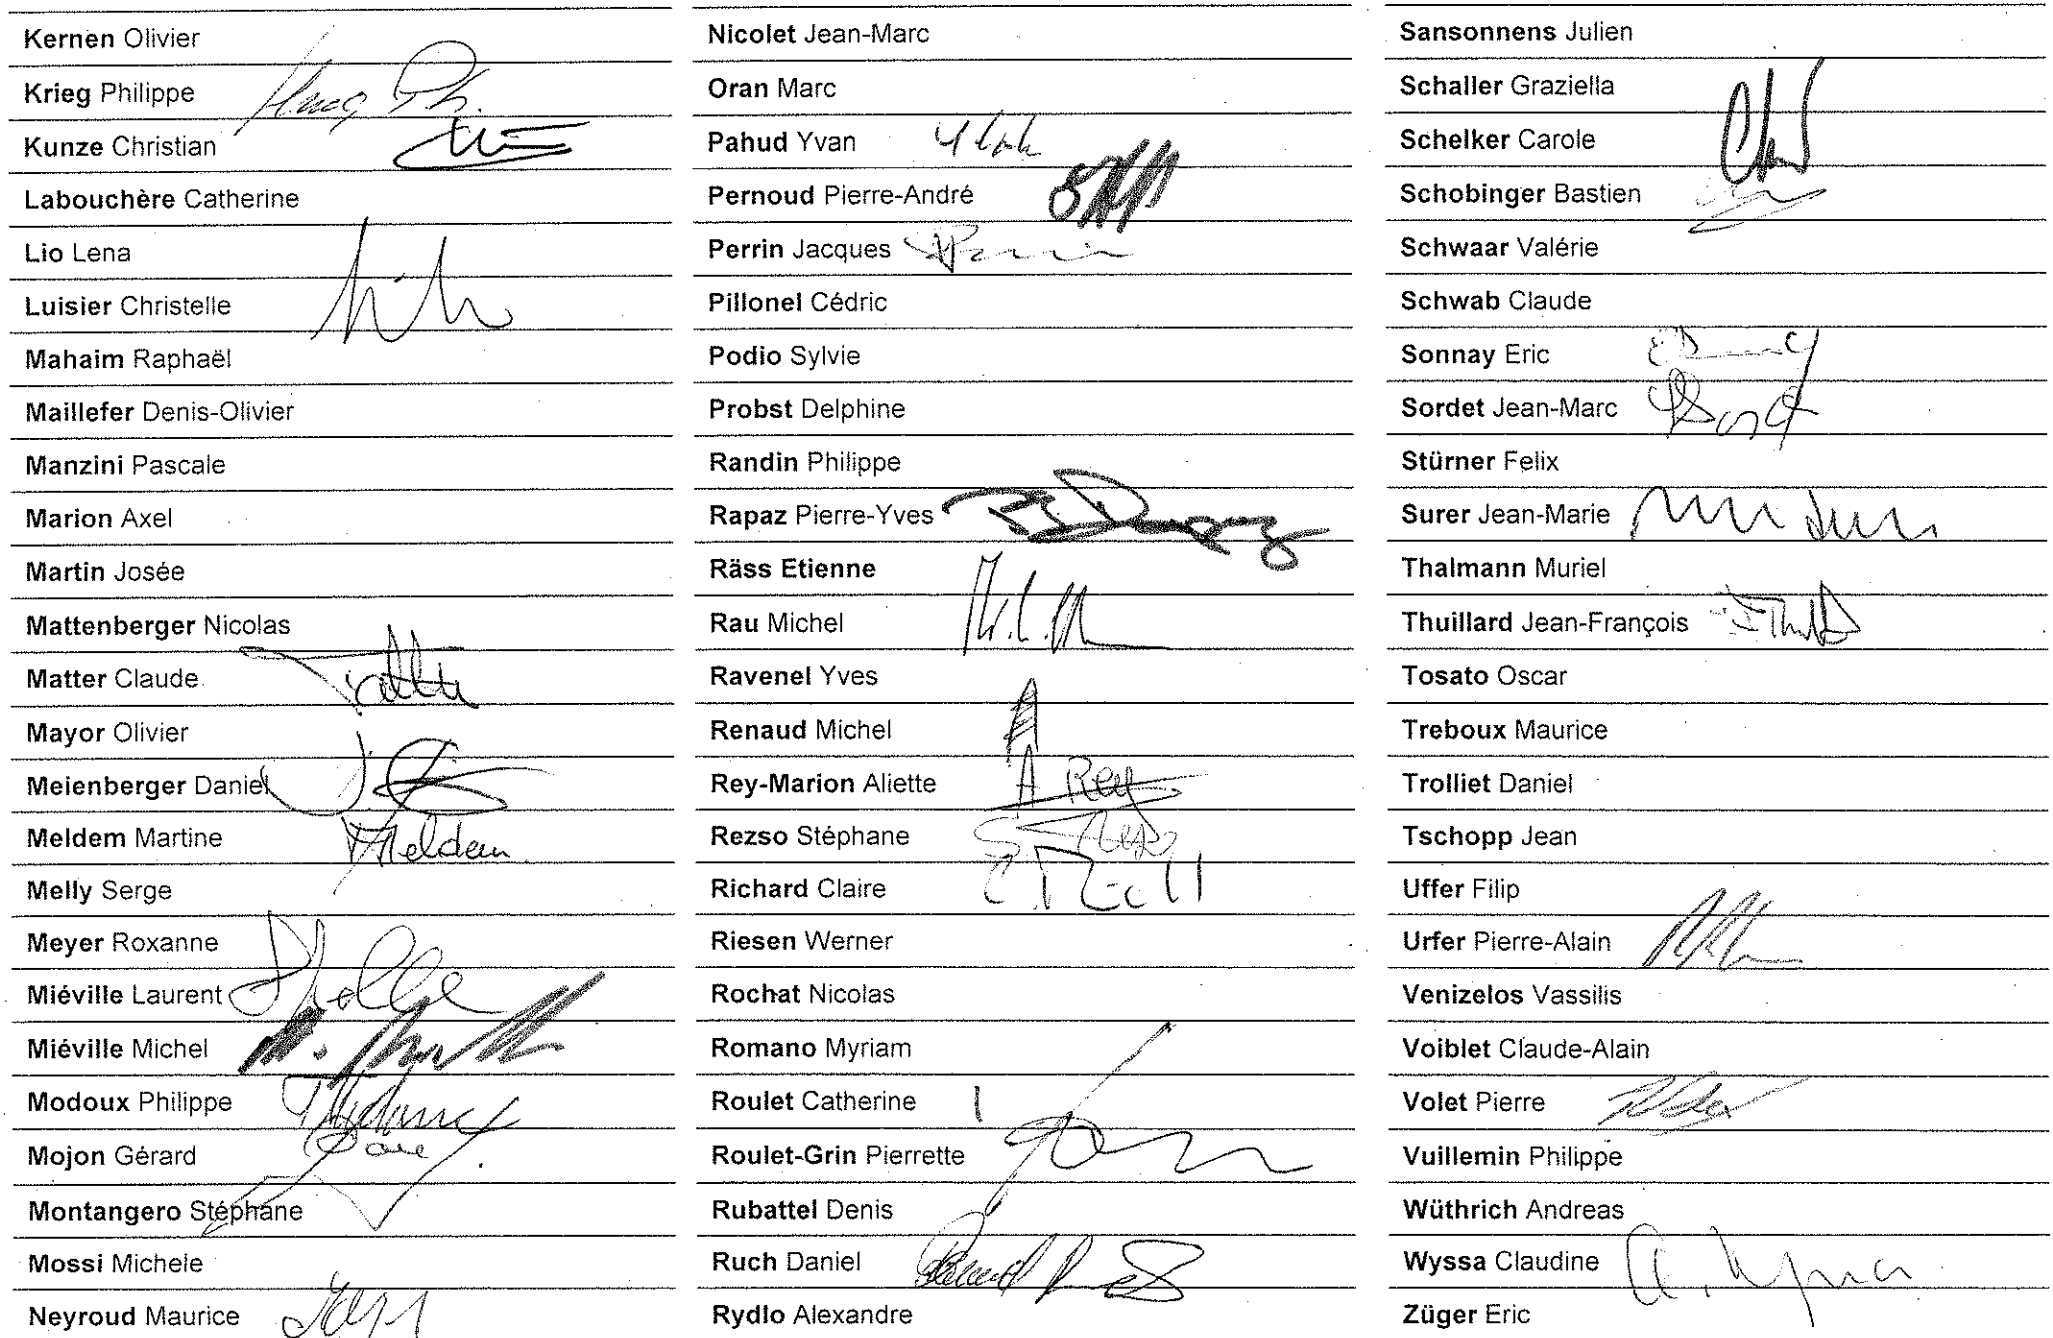 Kernen Olivier
Krieg Philippe
Kunze Christian
Labouchère Catherine
Lio Lena
Luisier Christelle
Mahaim Raphaël
Maillefer Denis-Olivier
Manzini Pascale
Marion Axel
Martin Josée
Mattenberger Nicolas
Matter Claude
Mayor Olivier
Meienberger Daniel
Meldem Martine Meldem
Melly Serge
Meyer Roxanne
Miéville Laurent
Miéville Michel
Modoux Philippe
Mojon Gérard
Montangero Stéphane
Mossi Michele
Neyroud Maurice
Nicolet Jean-Marc
Oran Marc
Pahud Yvan
Pernoud Pierre-André
Perrin Jacques
Pillonel Cédric
Podio Sylvie
Probst Delphine
Randin Philippe
Rapaz Pierre-Yves
Räss Etienne
Rau Michel
Ravenel Yves
Renaud Michel
Rey-Marion Aliette A Rey
Rezso Stéphane
Richard Claire
Riesen Werner
Rochat Nicolas
Romano Myriam
Roulet Catherine
Roulet-Grin Pierrette
Rubattel Denis
Ruch Daniel
Rydlo Alexandre
Sansonnens Julien
Schaller Graziella
Schelker Carole
Schobinger Bastien
Schwaar Valérie
Schwab Claude
Sonnay Eric
Sordet Jean-Marc
Stürner Felix
Surer Jean-Marie
Thalmann Muriel
Thuillard Jean-François
Tosato Oscar
Treboux Maurice
Trolliet Daniel
Tschopp Jean
Uffer Filip
Urfer Pierre-Alain
Venizelos Vassilis
Voiblet Claude-Alain
Volet Pierre
Vuillemin Philippe
Wüthrich Andreas
Wyssa Claudine
Züger Eric